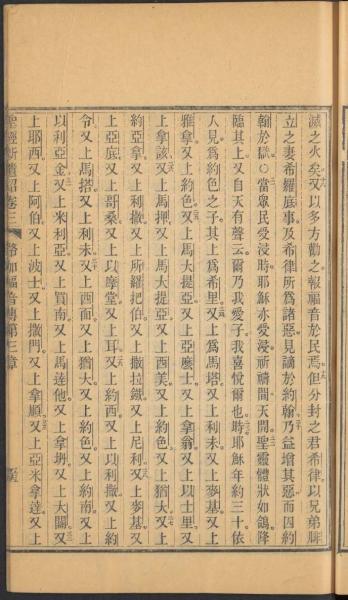 滅之火矣又以多方勸之報福音於民焉但分封之君希律以兄弟腓
立之妻希羅庭事及希律所爲諸惡見謫於約翰乃益增其惡而囚約
翰於獄○當衆民受浸時耶穌亦受浸祈禱間天開聖靈體狀如鴿降
臨其上又自天有聲云爾乃我愛子我喜悅爾也時耶穌年約三十依
人見爲約色之子其上爲希里又上爲馬塔又上利未又上麥基又上
雅拿又上約色又上馬大提亞又上亞麽士又上拿翁又上以士里又
上拿該又上馬押又上馬大提亞又上西美又上約色又上猶大又上
約亞拿又上利撒又上所羅把伯又上撒拉鐵又上尼利又上麥基又
上亞底又上哥桑又上以摩掌又上耳又上約西又上以利撒又上約
令又上馬撘又上利未又上西面又上猶大又上約色又上約南又上
以利亞金又上米利亞又上買南又上馬達他又上拿坍又上大闢又
上耶西又上阿伯又上波士又上撒門又上拿順又上亞米拿達又上
聖經新遺詔卷三 路加福音傳第三章